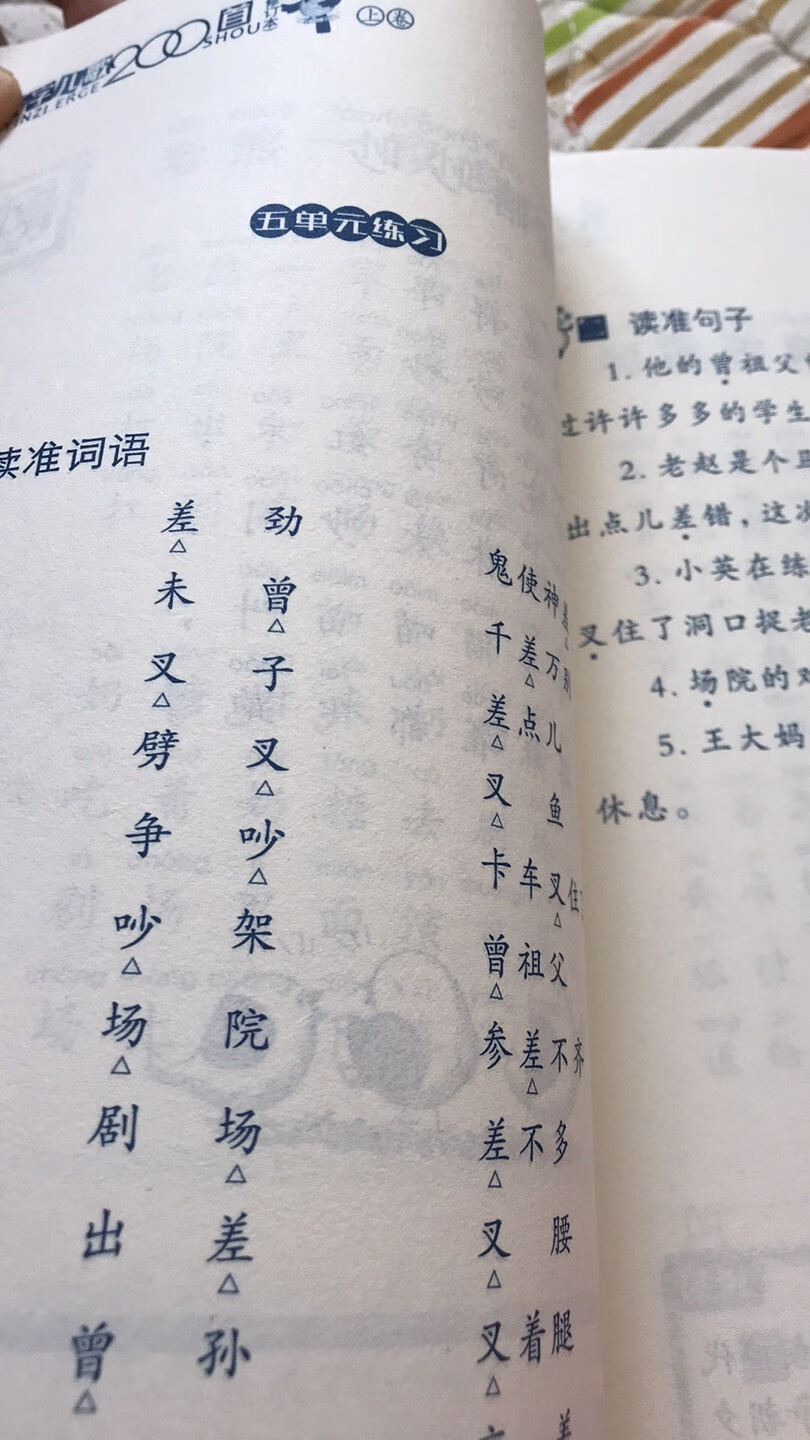 字儿歌200首
ZI ERGE
SHOU
修订本
上卷
五单元练习
读准词语
差 劲
未 曾
叉 子
劈 叉
争 吵
吵 架
场 院
剧 场
出 差
曾 孙
鬼使神差
千差万别
差点儿
叉 鱼
卡车叉住
曾祖父
参差不齐
差不多
叉 腰
叉着腿
读准句子
1. 他的曾祖父
过许许多多的学生
2. 老赵是个
出点儿差错，这次
3. 小英在练
叉住了洞口捉老
4. 场院的
5. 王大妈
休息。